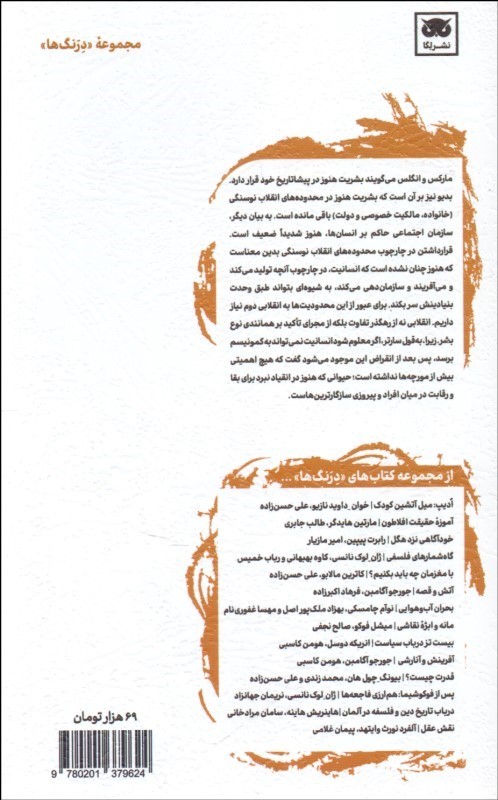 مجموعهٔ «دِرَنگ‌ها»
نشر لگا
مارکس و انگلس می‌گویند بشریت هنوز در پیشاتاریخ خود قرار دارد.
بدیو نیز بر آن است که بشریت هنوز در محدوده‌های انقلاب نوسنگی
(خانواده، مالکیت خصوصی و دولت) باقی مانده است. به بیان دیگر،
سازمان اجتماعی حاکم بر انسان‌ها، هنوز شدیداً ضعیف است.
قرارداشتن در چارچوب محدوده‌های انقلاب نوسنگی بدین معناست
که هنوز چنان نشده است که انسانیت، در چارچوب آنچه تولید می‌کند
و می‌آفریند و سازمان‌دهی می‌کند، به شیوه‌ای بتواند طبق وحدت
بنیادینش سر بکند. برای عبور از این محدودیت‌ها به انقلابی دوم نیاز
داریم. انقلابی نه از رهگذر تفاوت بلکه از مجرای تأکید بر همانندی نوع
بشر. زیرا، به‌قول سارتر، اگر معلوم شود انسانیت نمی‌تواند به کمونیسم
برسد، پس بعد از انقراض این موجود می‌شود گفت که هیچ اهمیتی
بیش از مورچه‌ها نداشته است؛ حیوانی که هنوز در انقیاد نبرد برای بقا
و رقابت در میان افراد و پیروزی سازگارترین‌هاست.
از مجموعه کتاب‌های «دِرَنگ‌ها» ...
اُدیپ: میل آتشین کودک | خوان ِداوید نازیو، علی حسن‌زاده
آموزهٔ حقیقت افلاطون | مارتین هایدگر، طالب جابری
خودآگاهی نزد هگل | رابرت پیپین، امیر مازیار
گاه‌شمارهای فلسفی | ژان‌لوک نانسی، کاوه بهبهانی و رباب خمیس
با مغزمان چه باید بکنیم؟ | کاترین مالابو، علی حسن‌زاده
آتش و قصه | جورجو آگامبن، فرهاد اکبرزاده
بحران آب‌وهوایی | نوآم چامسکی، بهزاد ملک‌پور اصل و مهسا غفوری‌نام
مانه و ابژهٔ نقاشی | میشل فوکو، صالح نجفی
بیست تز در باب سیاست | انریکه دوسل، هومن کاسبی
آفرینش و آنارشی | جورجو آگامبن، هومن کاسبی
قدرت چیست؟ | بیونگ‌ چول هان، محمد زندی و علی حسن‌زاده
پس از فوکوشیما: هم‌ارزی فاجعه‌ها | ژان‌لوک نانسی، نریمان جهانزاد
درباب تاریخ دین و فلسفه در آلمان | هاینریش هاینه، سامان مرادخانی
نقش عقل | آلفرد نورث وایتهد، پیمان غلامی
۶۹ هزار تومان
9 780201 379624